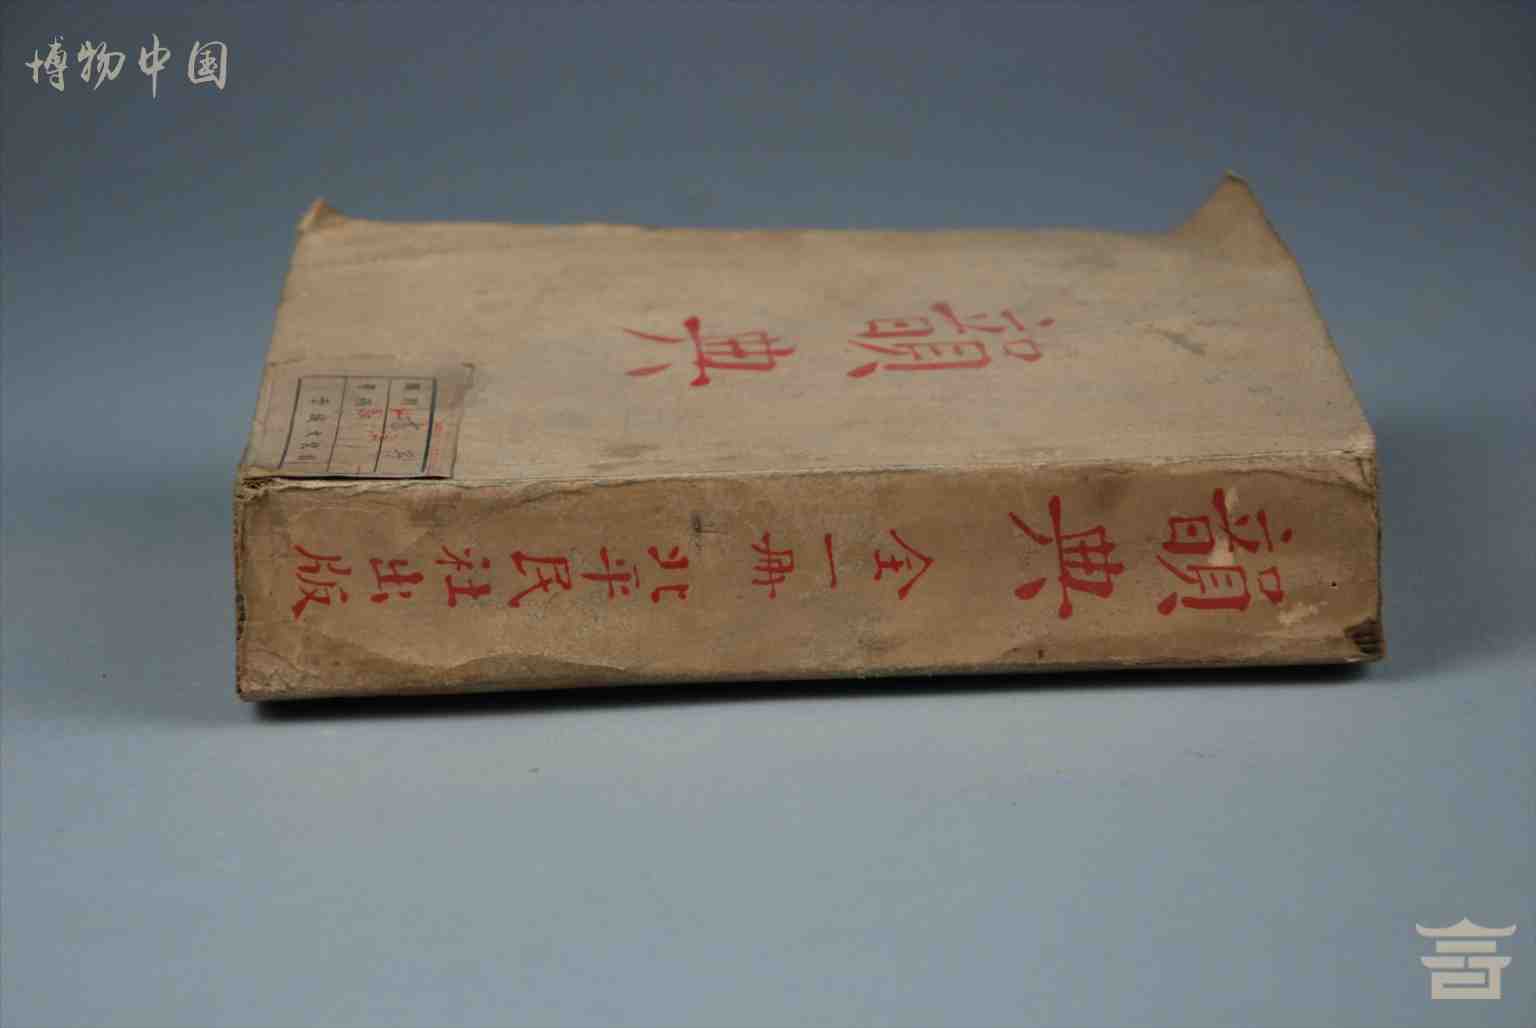 博物中国
韻典
韻典 全一冊 北平民社出版